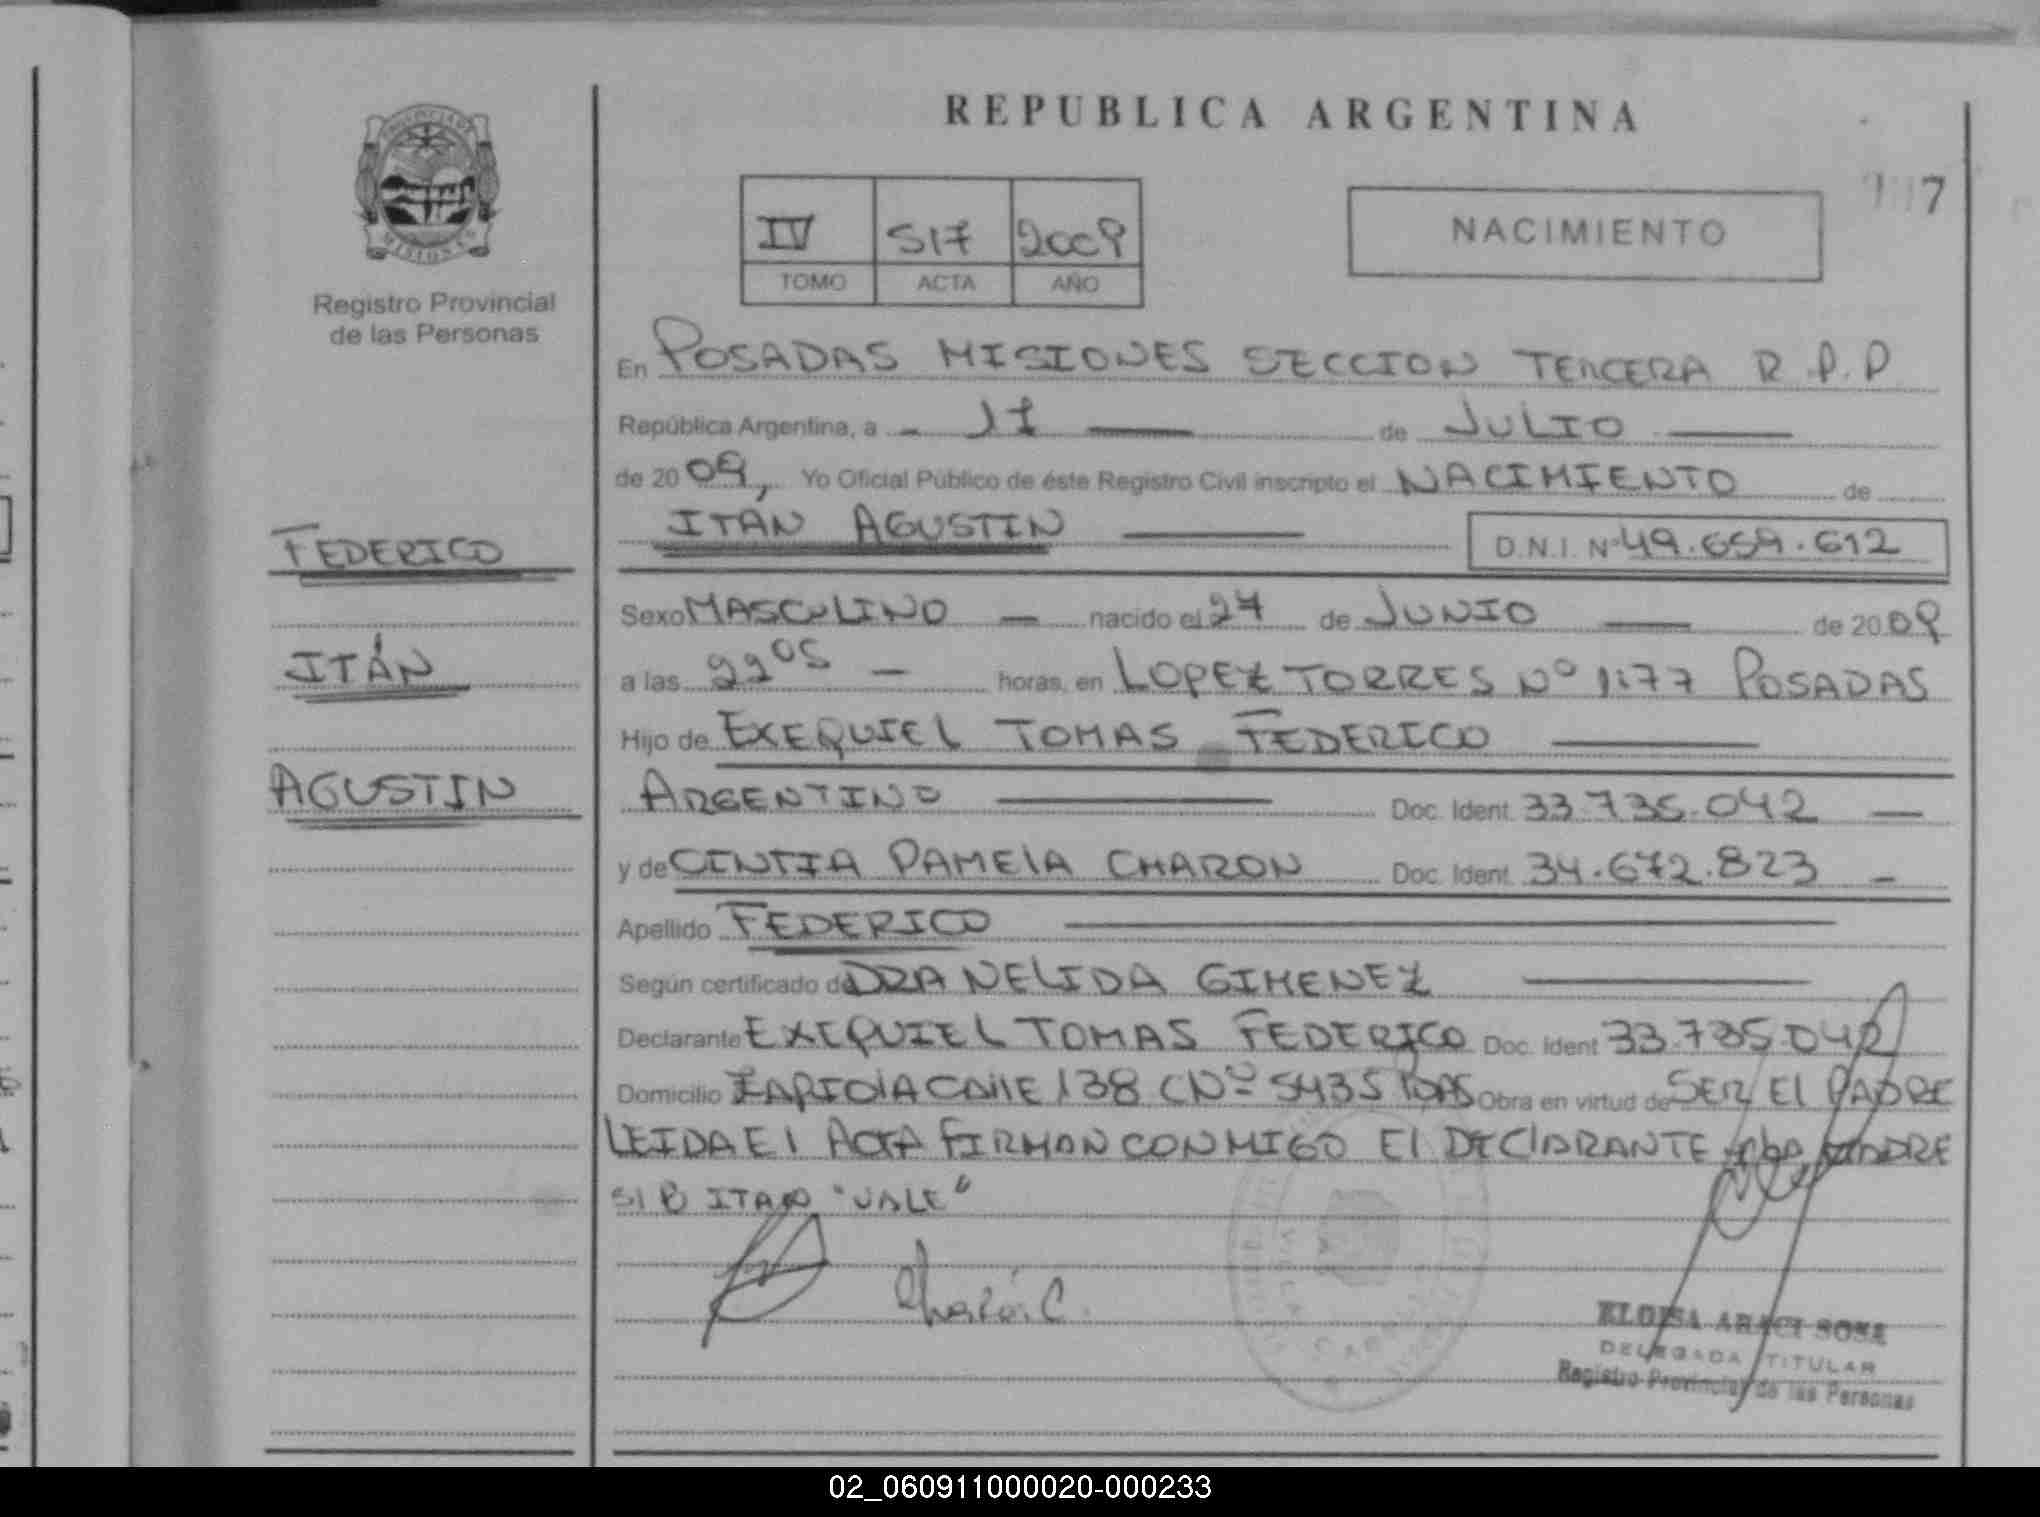 REPUBLICA ARGENTINA
PROVINCIA DE
MISIONES
Registro Provincial
de las Personas
7
IV 517 2009
TOMO ACTA AÑO
NACIMIENTO
En POSADAS MISIONES SECCION TERCERA R.P.P
República Argentina, a - 11 — de JULIO —
de 2009, Yo Oficial Público de éste Registro Civil inscripto el NACIMIENTO de
ITÁN AGUSTIN — D.N.I. Nº 49.659.612
FEDERICO
ITÁN
AGUSTIN
Sexo MASCULINO — nacido el 27 de JUNIO — de 2009
a las 22 05 — horas, en LOPEZ TORRES Nº 1177 POSADAS
Hijo de EXEQUIEL TOMAS FEDERICO —
ARGENTINO — Doc. Ident. 33.735.042 —
y de CINTIA PAMELA CHARON Doc. Ident. 34.672.823 -
Apellido FEDERICO —
Según certificado de DRA NELIDA GIMENEZ —
Declarante EXEQUIEL TOMAS FEDERICO Doc. Ident 33.735.042
Domicilio CALLE 138 C Nº 5435 PDAS Obra en virtud de SER EL PADRE
LEIDA EL ACTA FIRMAN CONMIGO EL DECLARANTE MADRE
S/B ITAN "VALE"
Charón C.
ELOISA ARACI SOSA
DELEGADA TITULAR
Registro Provincial de las Personas
02_060911000020-000233